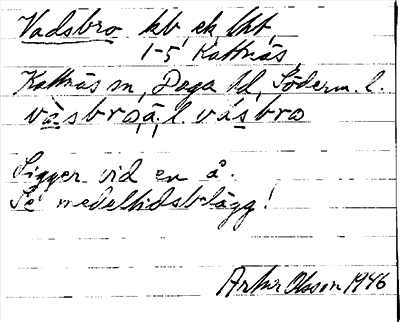 Vadsbro kb, ek lht,
1-5 Kattnäs,
Kattnäs sn, Daga hd, Söderm. l.
våsbro, ä. l. våsbro
Ligger vid en å.
Se medeltidsbelägg!
Artur Olsson 1946